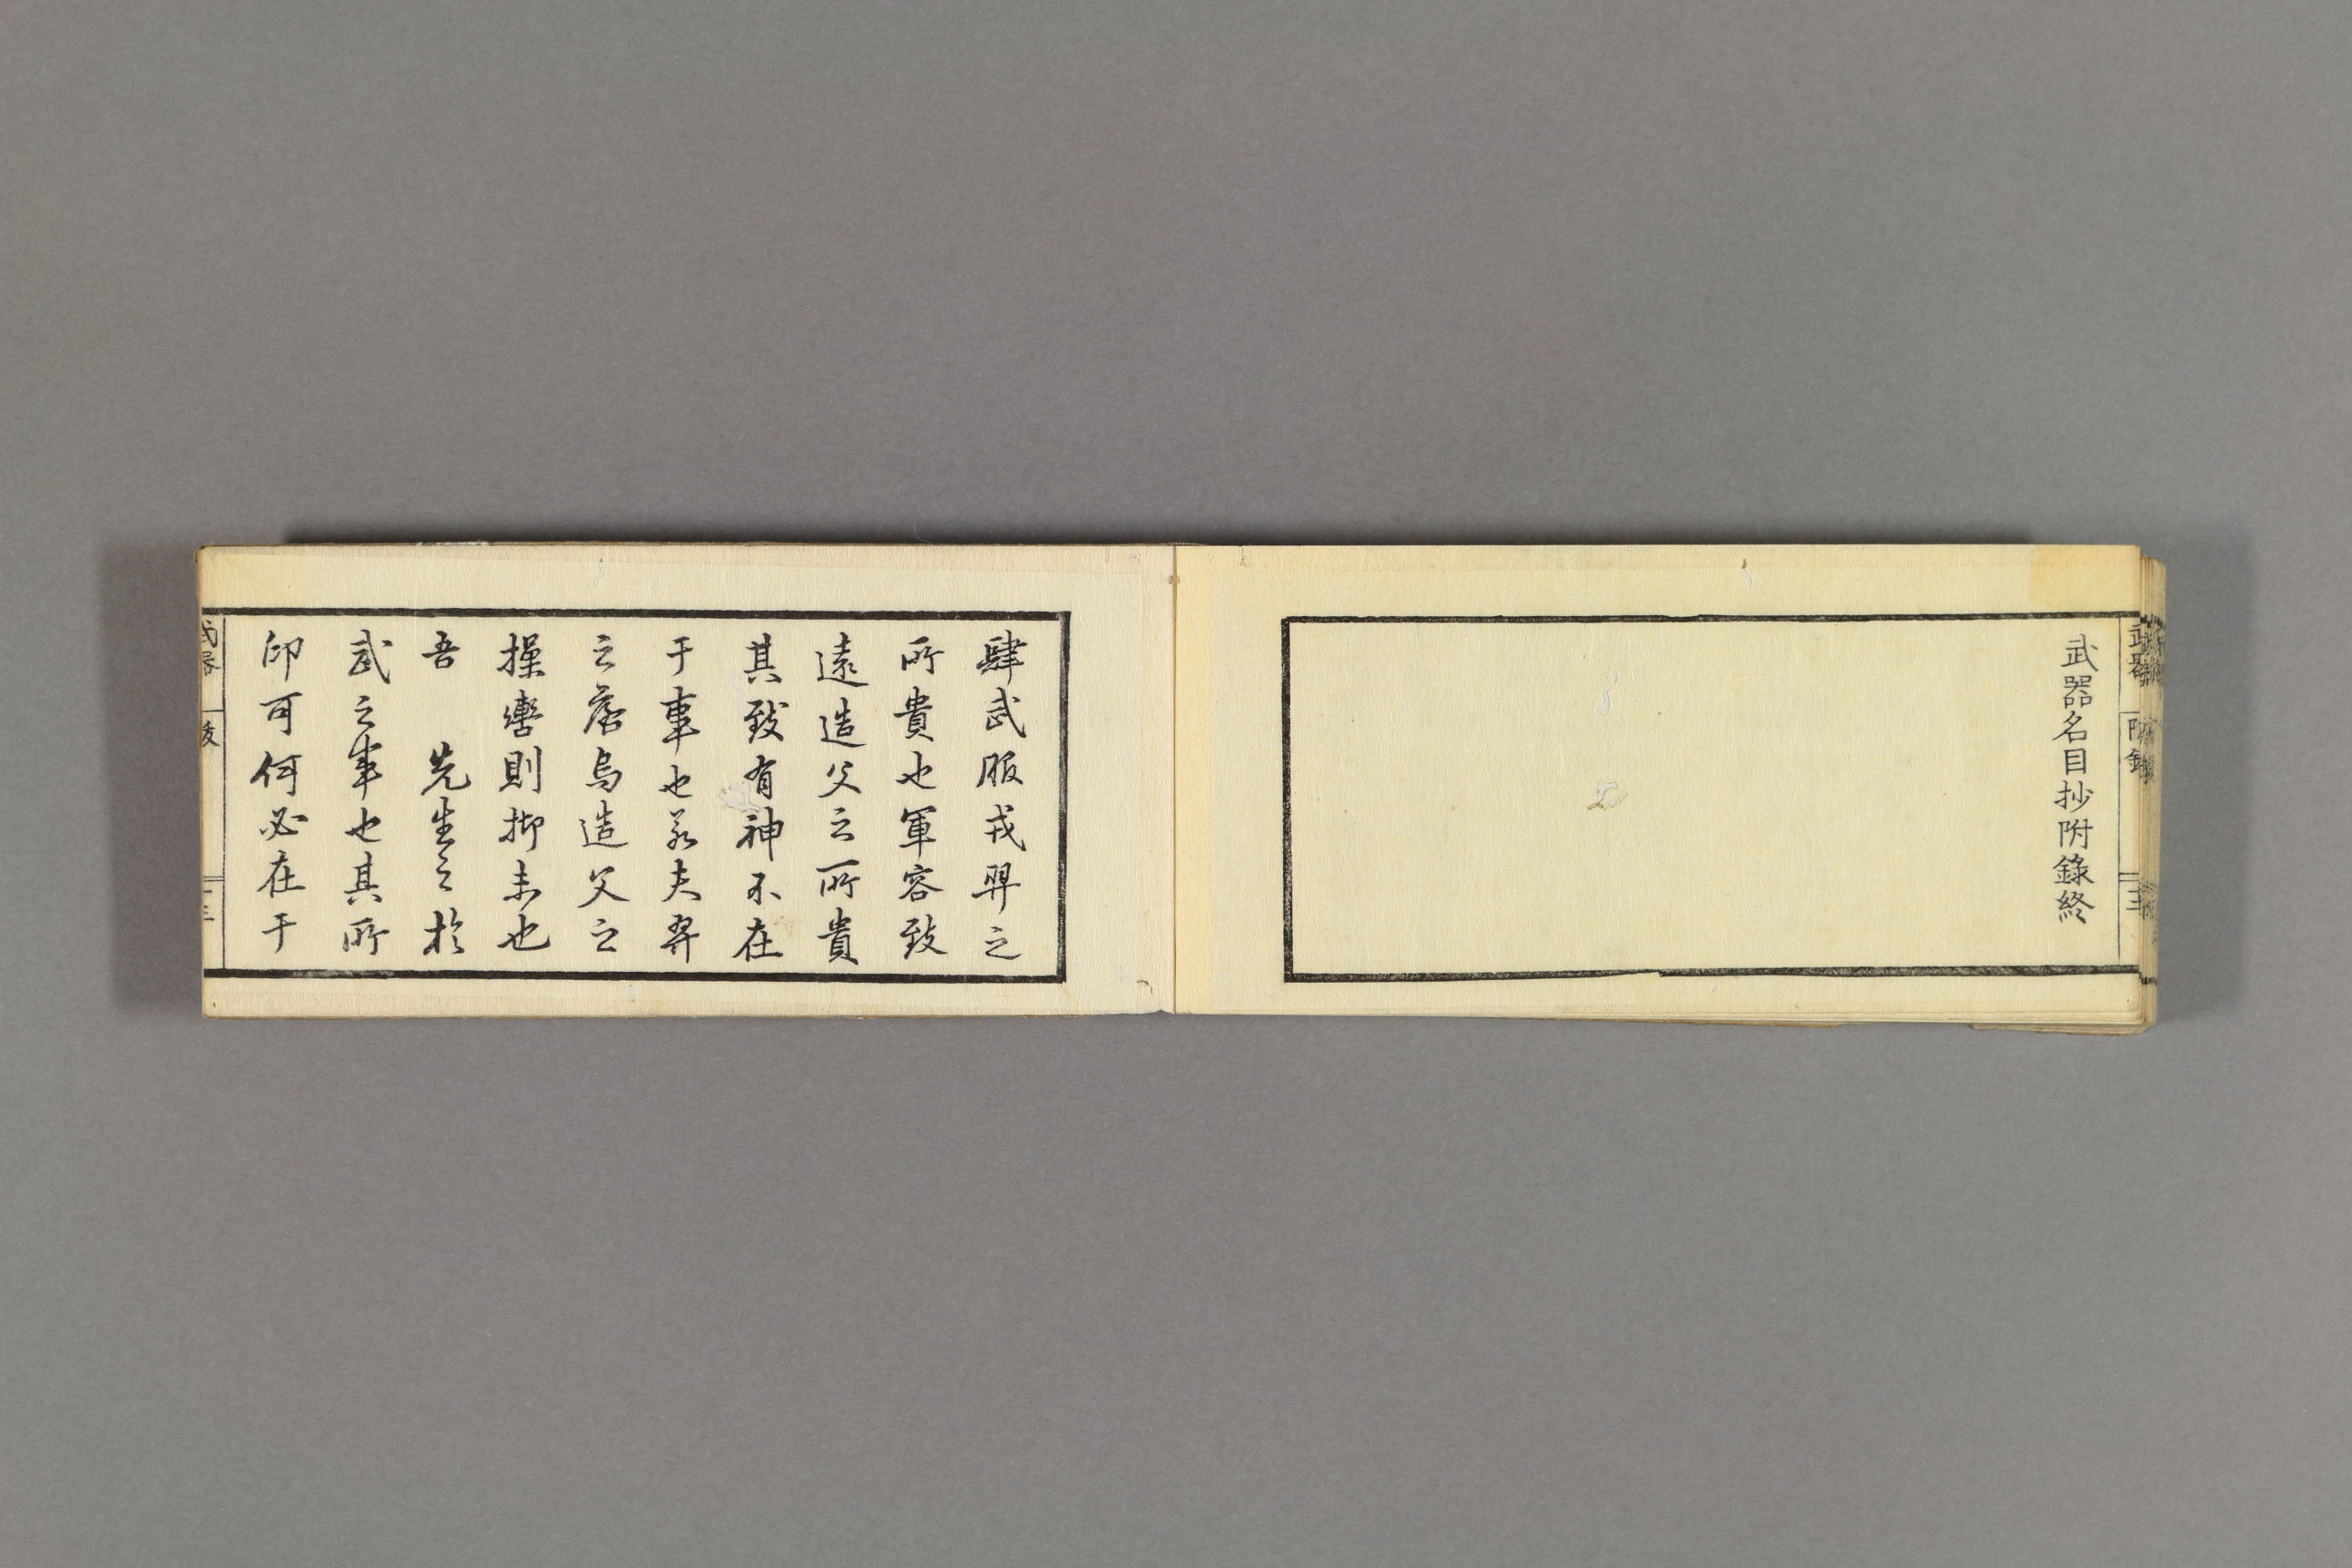 武器
附録
武器名目抄附錄終
肆武服戎羿之
所貴也軍容致
遠造父之所貴
其致有神不在
于事也若夫羿
之彎烏造父之
操轡則抑末也
吾　先生之於
武之事也其所
印可何必在于
武器